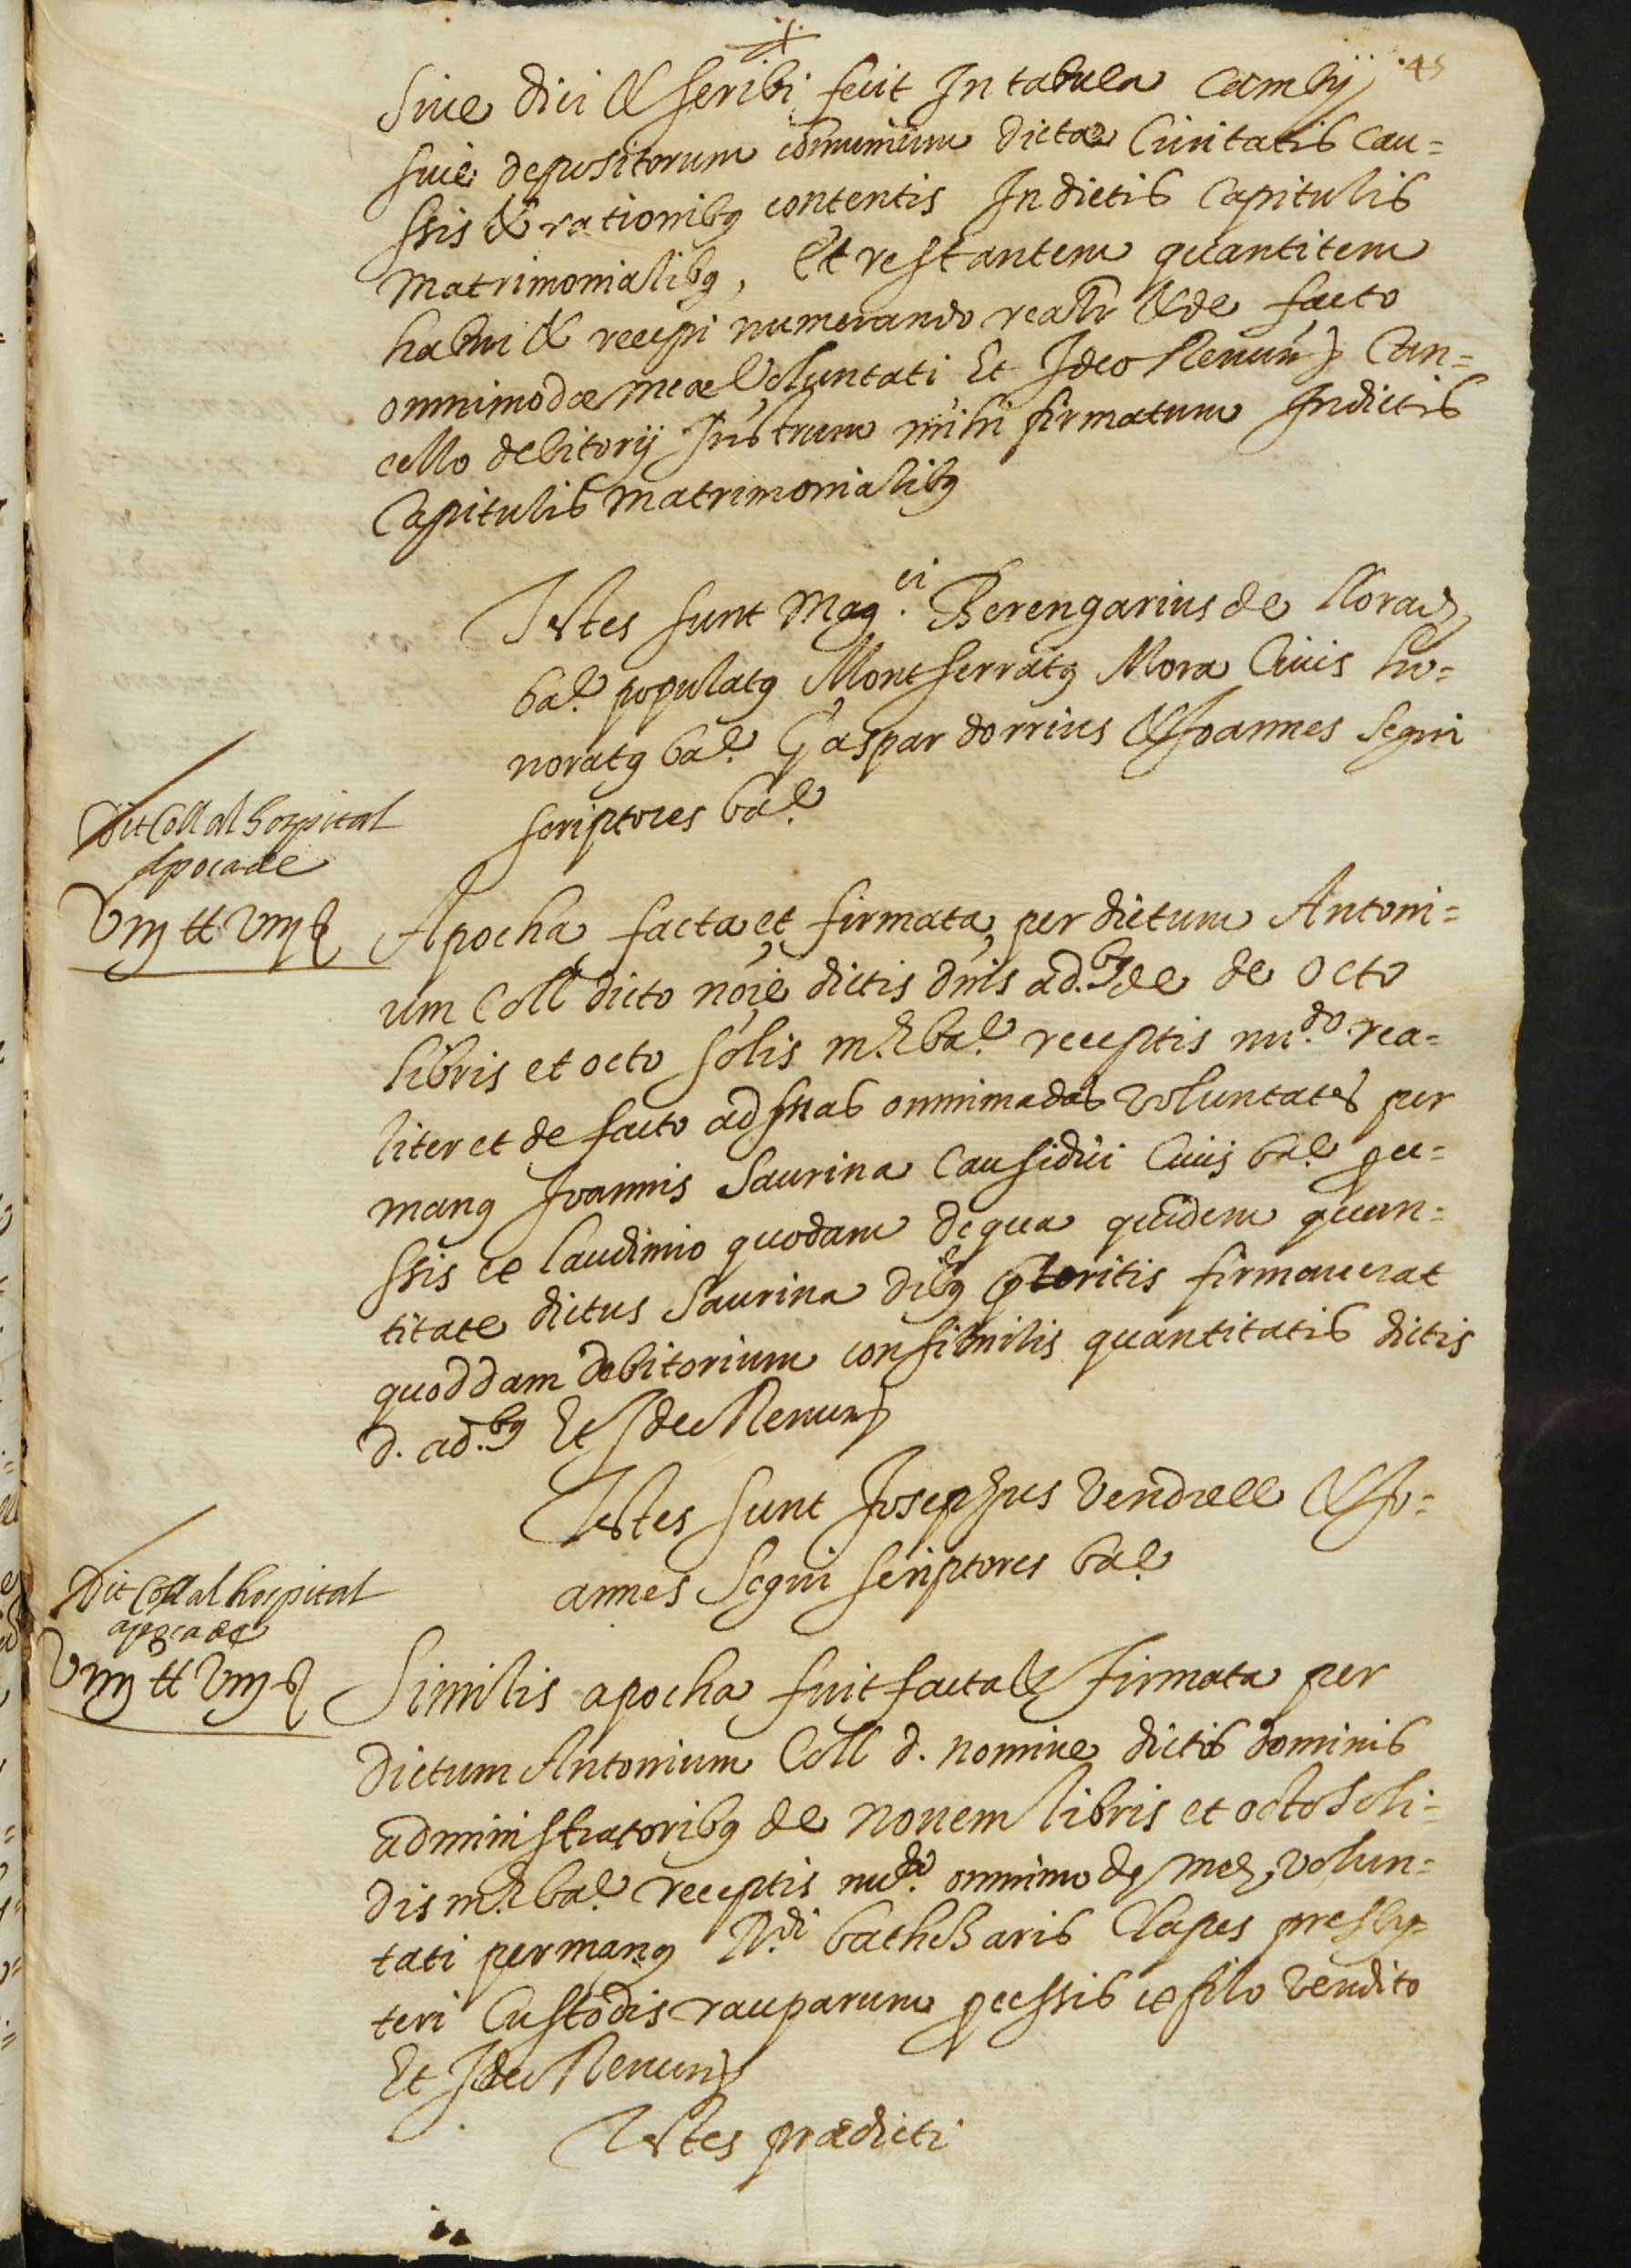 45
Sive dici & scribi fecit In tabula Cambij
sive depositorum comunium dictae Civitatis Cau=
ssis & rationibꝰ contentis In dictis Capitulis
matrimonialibꝰ, Et restantem quantitem
habui & recepi numerando realr̃ & de facto
omnimodae meae Voluntati Et Ideo Renunꝫ Can=
cello debitorij Instrum mihi firmatum In dictis
Capitulis matrimonialibꝰ
Testes sunt Mag.ci Berengarius de Lloraz
bar̃. populatꝰ Montserratꝰ Mora Civis ho=
noratꝰ bar̃. Gaspar dorrius & Joannes Seguí
scriptores bar̃.
Dit Coll al hospital
apoca de
Viiij tt Viij ß
Apocha facta et firmata per dictum Antoni=
um Coll dicto noie dictis dnis ad.bꝰ de de octo
libris et octo solis m.ꝫ bar̃. receptis nu.do rea=
liter et de facto ad suas omnimodas voluntates per
manꝰ Joannis Saurina Causidici Civis bar̃. ꝓce=
ssis ex laudimio quodam de qua quidem quan=
titate dictus Saurina diebꝰ pr̃teritis firmaverat
quoddam debitorium consimilis quantitatis dictis
d. ad.bꝰ Et Ideo Renunꝫ
Testes sunt Josephus Vendrell & Jo=
annes Seguí scriptores bar̃.
Dit Coll al hospital
apoca de
Viiij tt Viij ß
Similis apocha fuit facta & firmata per
dictum Antonium Coll d. nomine dictis dominis
administratoribꝰ de novem libris et octo soli=
dis m.ꝫ bar̃. receptis nu.do omnimodę meę volun=
tati per manꝰ R.di bathesaris Clapes presby=
teri Custodis rauparum ꝓcessis ex filo vendito
Et Ideo Renunꝫ
Testes praedicti